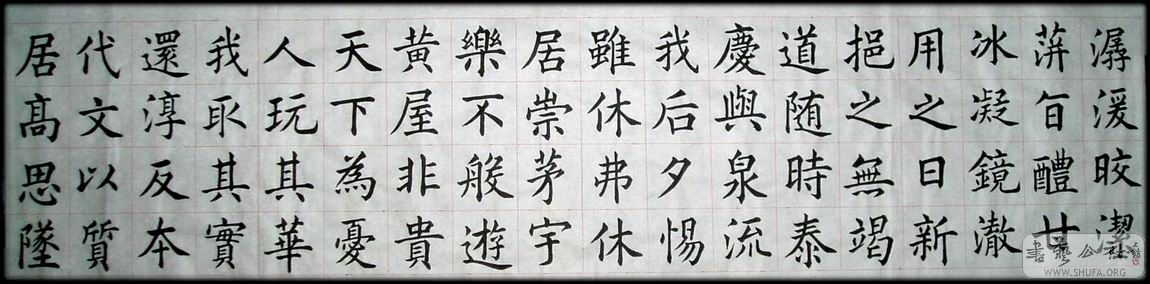 潺湲晈潔
萍旨醴甘
冰凝鏡澈
用之日新
挹之無竭
道随時泰
慶與泉流
我后夕惕
雖休弗休
居崇茅宇
樂不般遊
黄屋非貴
天下為憂
人玩其華
我取其實
還淳反本
代文以質
居髙思墜
WWW.SHUFA.ORG